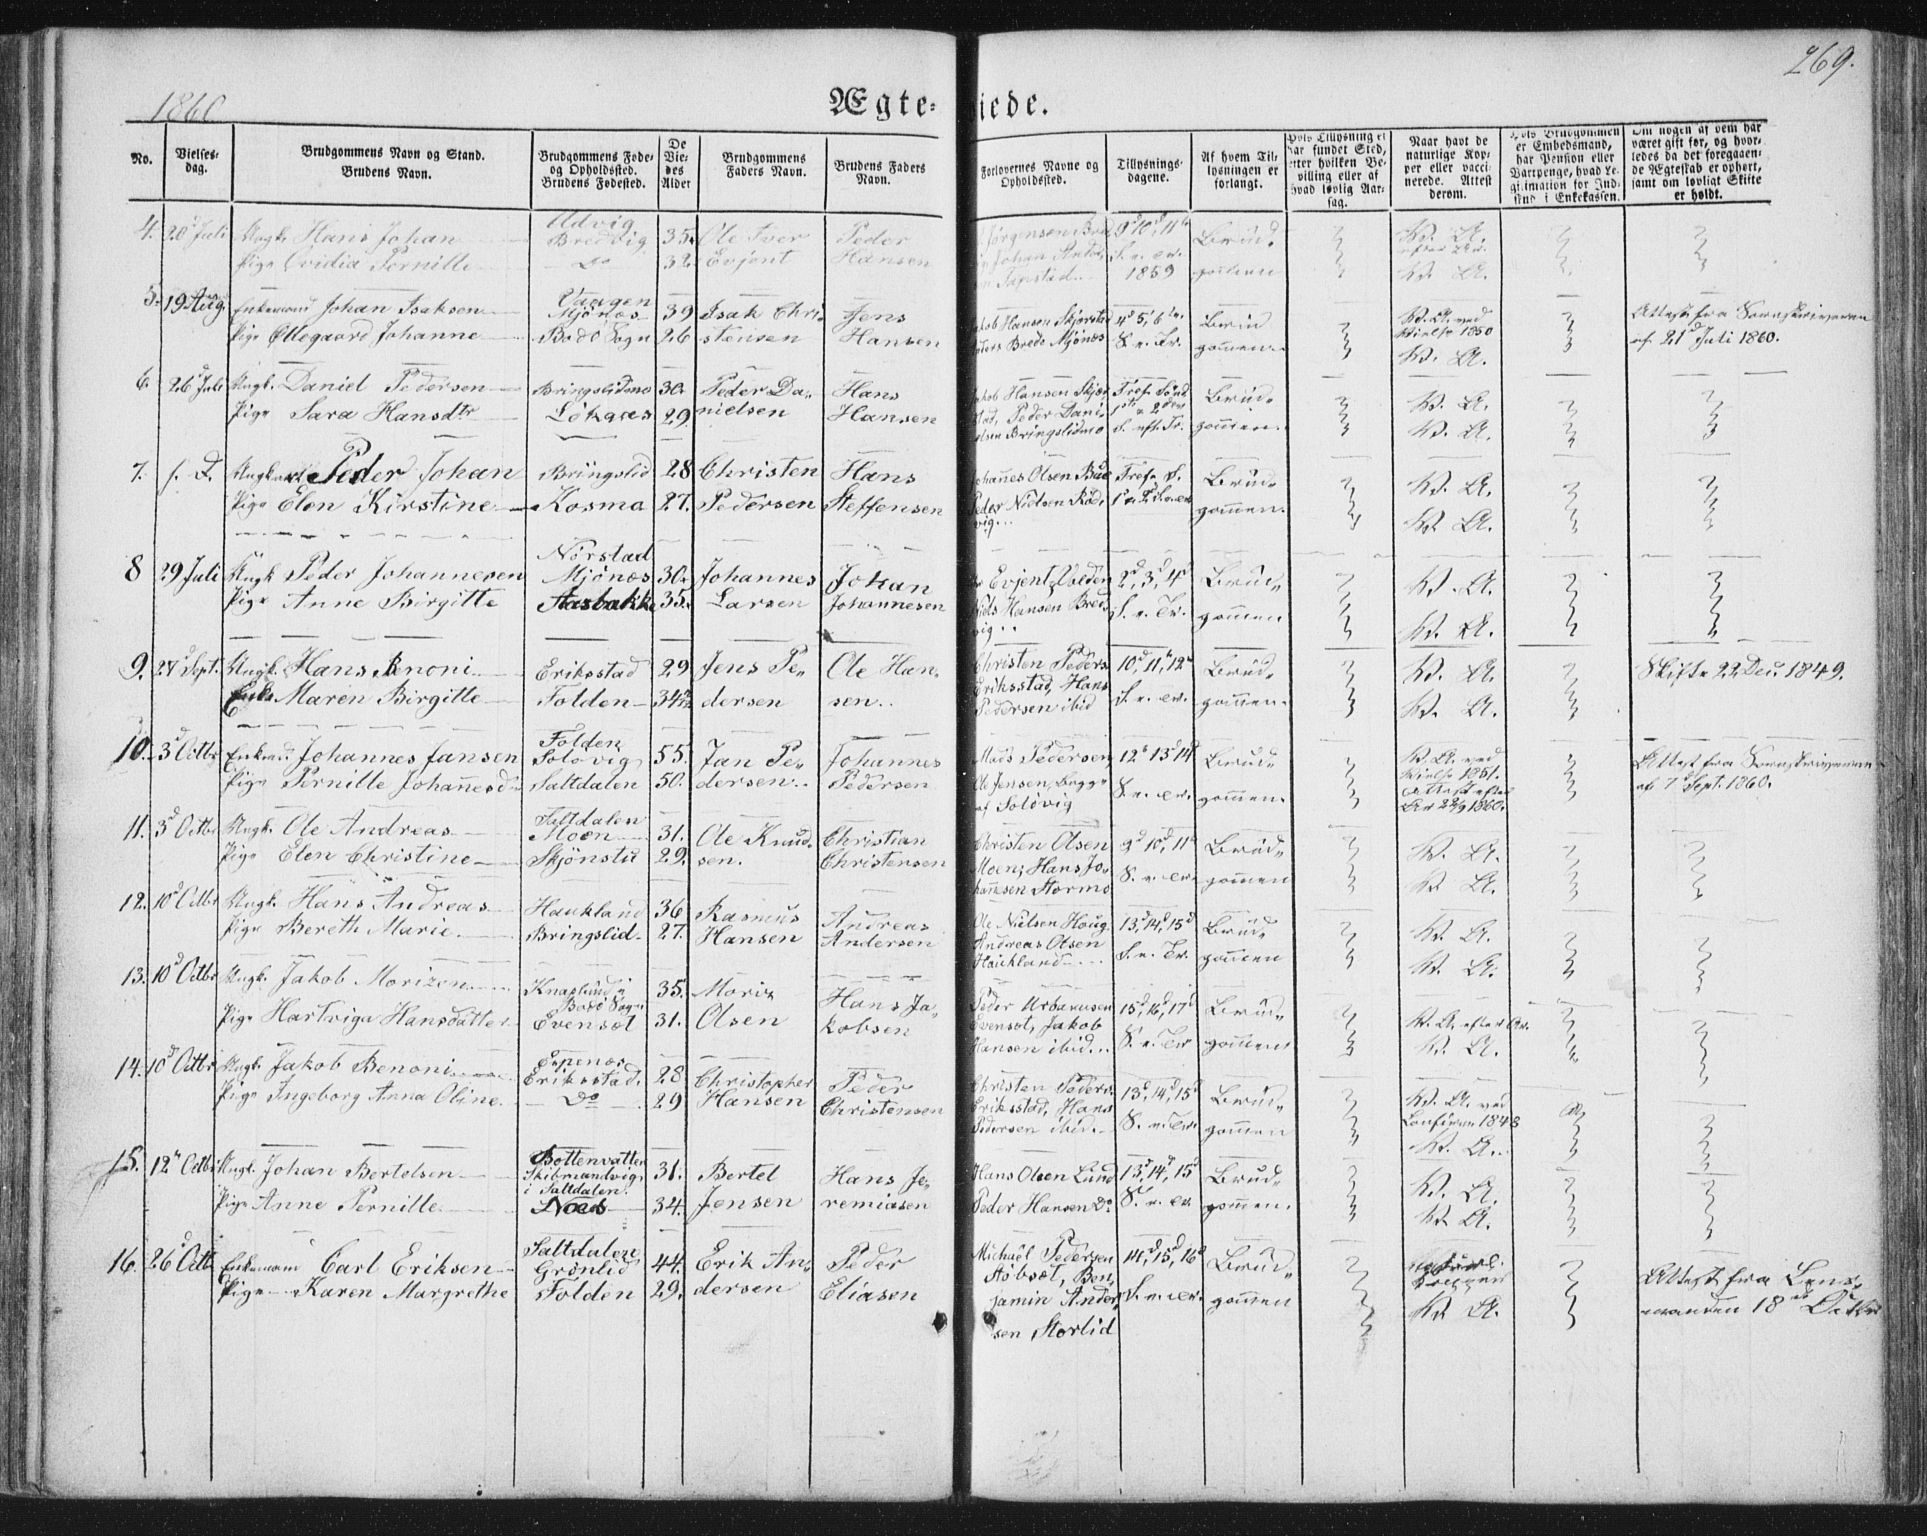 269.
1860
Ægteviede.
No.
Vielses-
dag.
Brudgommens Navn og Stand.
Brudens Navn.
Brudgommens Føde-
og Opholdsted.
Brudens Fødested.
De
Vie-
des
Alder
Brudgommens
Faders Navn.
Brudens Faders
Navn.
Forlovernes Navne og
Opholdsted.
Tillysnings-
dagene.
Af hvem Til-
lysningen er
forlangt.
Hvis Tillysning ei
har fundet Sted,
efter hvilken Be-
villing eller af
hvad lovlig Aar-
sag.
Naar havt de
naturlige Kop-
per eller vacci-
nerede. Attest
derom.
Hvis Brudgommen
er Embedsmand,
har Pension eller
Vartpenge, hvad Le-
gitimation for Ind-
skud i Enkekassen.
Om nogen af dem har
været gift før, og hvor-
ledes da det foregaaen-
de Ægteskab er ophørt,
samt om lovligt Skifte
er holdt.
4. 20 Juli Ungk. Hans Johan
Pige Ovidia Pernille
Udvig
Bredvig
Do
35.
32.
Ole Iver
Evjent
Peder
Hansen
Jørgensen
Johan
9d 10d, 11te
S. e. 
1859
Brud-
gommen
V. A.
V. A.
5. 19 Aug. Enkemand Johan Isaksen
Pige Ollegaard Johanne
Vaagen
Mjönes
Bodö Sogn
39
26
Isak Chri-
stensen
Jens
Hansen
Jakob Hansen Skjerstad
Brede Mjönes
4d 5, 6te
S. e. Tr.
Brud
gommen.
V. A. ved
Vielse 1850
V. A.
Attest fra Sorenskriveren
af 21d Juli 1860.
6. 26 Juli Ungk. Daniel Pedersen
Pige Sara Hansdtr
Bringslidmo
Lökaas
30.
29.
Peder Da-
nielsen
Hans
Hansen
Jakob Hansen Skjer-
stad, Peder Dani-
elsen Bringslidmo
Tref. Sönd
1ste & 2den
S. eft. Tr.
Brud-
gommen.
V. A.
V. A.
7. f. D. Ungkarl Peder Johan
Pige Elen Kirstine
Bringslid
Kosmo
28
27.
Christen
Pedersen
Hans
Steffensen
Johannes Olsen
Peder Nielsen Röd-
vig
Tref. S.
Brud-
gommen.
V. A.
V. A.
8 29 Juli Ungk Peder Johannesen
Pige Anne Birgitte
Nörstad
Mjönes
Aasbakk
30.
35.
Johannes
Larsen
Johan
Johannesen
Evjent, Volden
Niels Hansen Bred-
vig
2d, 3d, 4d
S. e. Tr.
Brud-
gommen
V. A.
V. A.
9. 24 Sept. Ungk. Hans Benoni
Enke Maren Birgitte
Eriksstad
Folden
29
34
Jens Pe-
dersen
Ole Han-
sen.
Christen Peders.
Eriksstad, Hans
Pedersen ibid
10d, 11te, 12te
Brud-
gommen.
V. A.
V. A.
Skifte 22 Dec. 1849.
10. 3d Octbr Enkemd. Johannes Jansen
Pige Pernille Johannesd.
Folden
Solövig
Saltdalen
55.
50.
Jan Pe-
dersen.
Johannes
Pedersen
Mads Pedersen
Ole Jensen, begge
af Solövig
12te 13d 14d
Brud-
gommen.
V. A. ved
Vielse 1851.
Attest fra Sorenskriveren
af 7d Sept. 1860.
11. 3d Octbr Ungk. Ole Andreas
Pige Elen Christine
Saltdalen
Moen
Skjönstu
31.
29.
Ole Knud-
sen.
Christian
Christensen
Christen Olsen
Moen, Hans Jo-
hansen Stormo
9d 10d, 11te
Brud-
gommen
V. A.
V. A.
12. 10d Octbr Ungk. Hans Andreas
Pige Bereth Marie
Haukland
Bringslid
36
27.
Rasmus
Hansen
Andreas
Andersen
Ole Nielsen Houg
Andreas Olsen
Haukland
13d, 14d, 15d
S. e. Tr.
Brud-
gommen
V. A.
V. A.
13. 10d Octbr Ungk. Jakob Morizen
Pige Hartviga Hansdatter
Knaplund i
Bodö Sogn
Evenset
35.
31.
Moriz
Olsen
Hans Ja-
kobsen
Peder Urbanusen
Evensöt, Jakob
Hansen ibid.
15d, 16d, 17d
S. e. Tr
Brud-
gommen
V. A.
V. A.
14. 10d Octbr Ungk. Jakob Benoni
Pige Ingeborg Anna Oline
Espenæs
Eriksstad.
Do
28
29
Christopher
Hansen
Peder
Christensen
Christen Peders.
Eriksstad, Hans
Pedersen ibid.
13d, 14d, 15d
Brud-
gommen
V. A. ved
1848
V. A.
15. 12te Octbr Ungk. Johan Bertelsen
Pige Anne Pernille
Bottenvatten
Skibmandvig
i Saltdalen.
Næs
31.
34.
Bertel
Jensen
Hans Je-
remiasen
Hans Olsen Lund
Peder Hansen Do
13d, 14d, 15d
Brud-
gommen.
V. A.
V. A.
16. 26d Octbr Enkemand Carl Eriksen
Pige Karen Margrethe
Saltdalen
Grönlid
Folden
44.
29.
Erik An-
dersen
Peder
Eliasen
Michael Pedersen
Stöbsöt, Ben-
jamin Ander-
sen Storlid
14d, 15d, 16d
Brud-
gommen
V. A.
Attest fra Lens-
manden 18